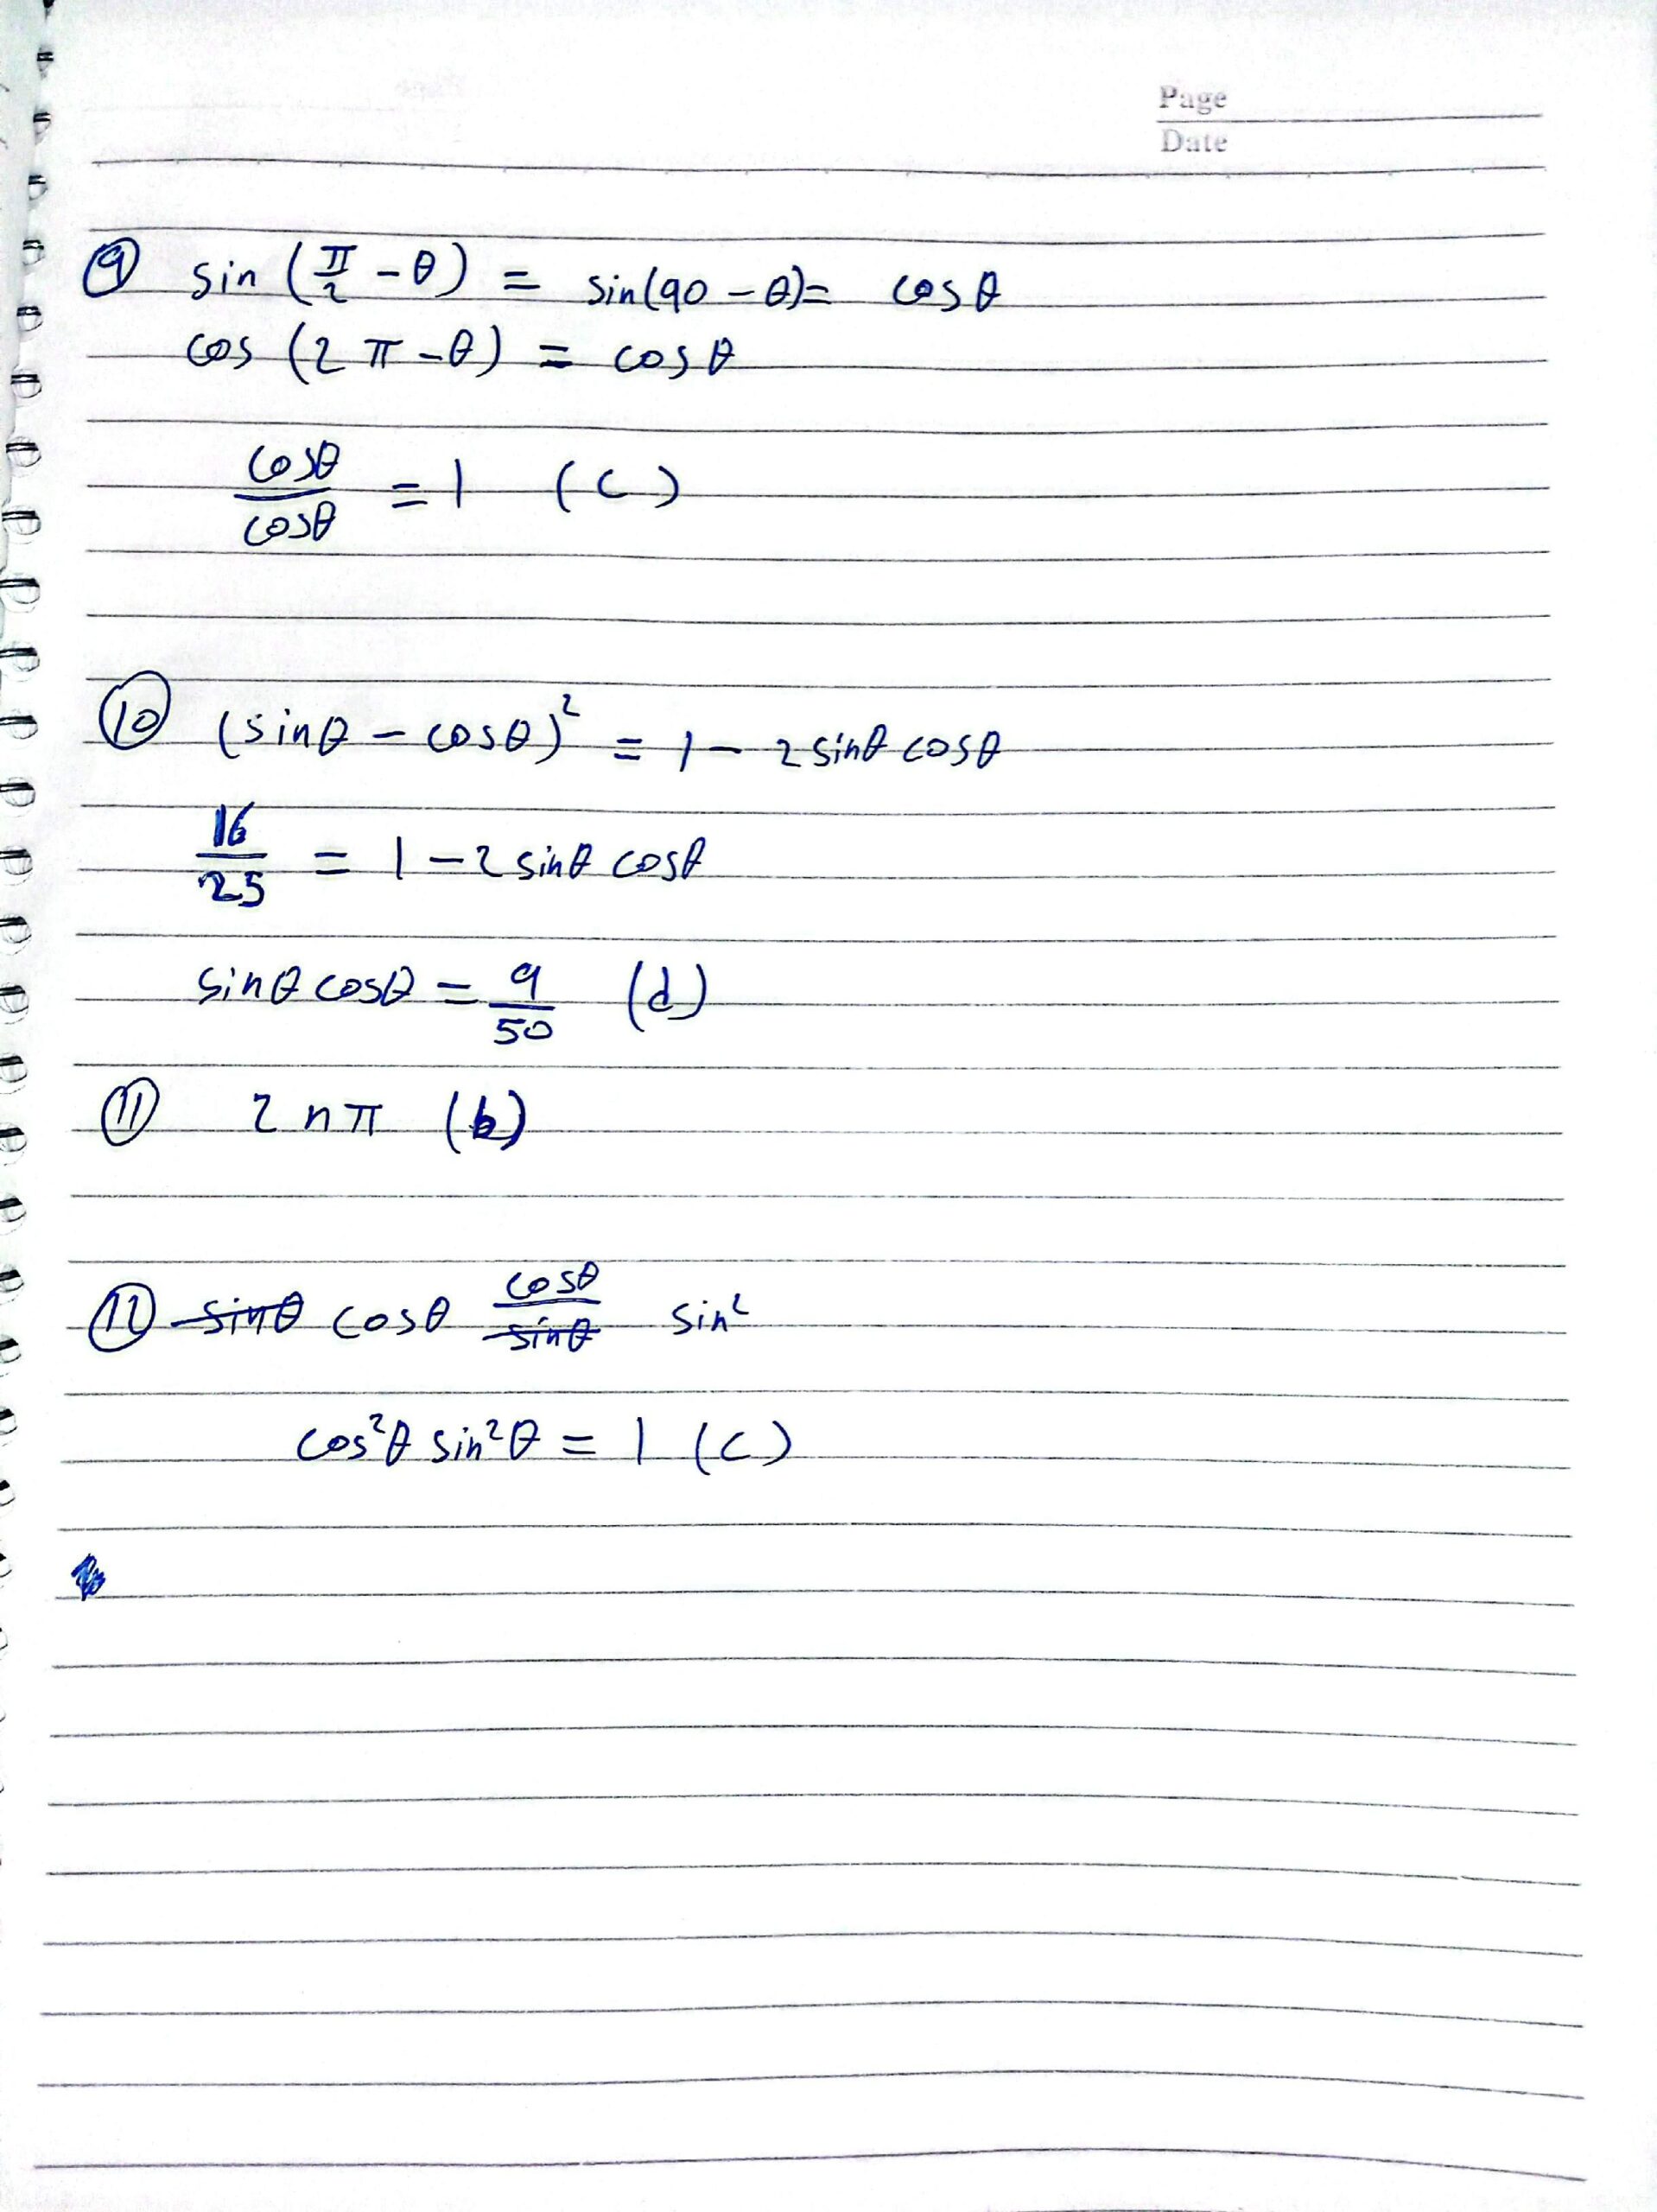 Page
Date
⑨ sin (π/2 - θ) = sin(90 - θ) = cos θ
cos (2π - θ) = cos θ
cosθ/cosθ = 1 (c)
⑩ (sinθ - cosθ)² = 1 - 2 sinθ cosθ
16/25 = 1 - 2 sinθ cosθ
sinθ cosθ = 9/50 (d)
⑪ 2nπ (b)
⑫ ~~sinθ~~ cosθ cosθ/~~sinθ~~ sin²
cos²θ sin²θ = 1 (c)